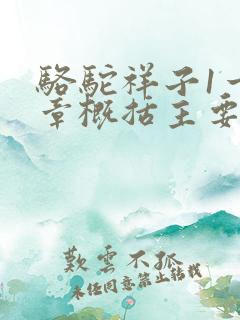 駱駝祥子1一
章概括主要
歎雲不孤
未经同意禁止转载